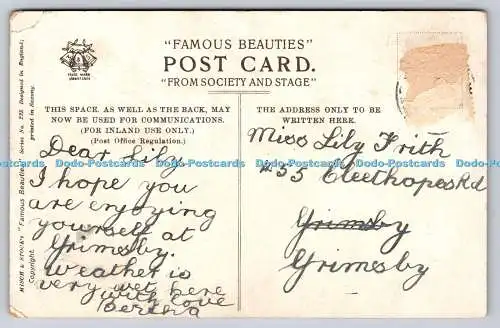 "FAMOUS BEAUTIES"
POST CARD.
"FROM SOCIETY AND STAGE"
THIS SPACE, AS WELL AS THE BACK, MAY
NOW BE USED FOR COMMUNICATIONS.
(FOR INLAND USE ONLY.)
(Post Office Regulation.)
THE ADDRESS ONLY TO BE
WRITTEN HERE.
Dear Lily
I hope you
are enjoying
yourself at
Grimsby.
Weather is
very wet here
with love
Miss Lily Frith
255 Cleethopes Rd
Grimsby
Grimsby
"Famous Beauties" Series No. Designed in England;
printed in Saxony.
Copyright.
TRADE MARK
Dodo-Postcards Dodo-Postcards Dodo-Postcards Dodo-Postcards Dodo-Postcards Dodo-Postcards
Dodo-Postcards Dodo-Postcards Dodo-Postcards Dodo-Postcards Dodo-Postcards Dodo-Postcards